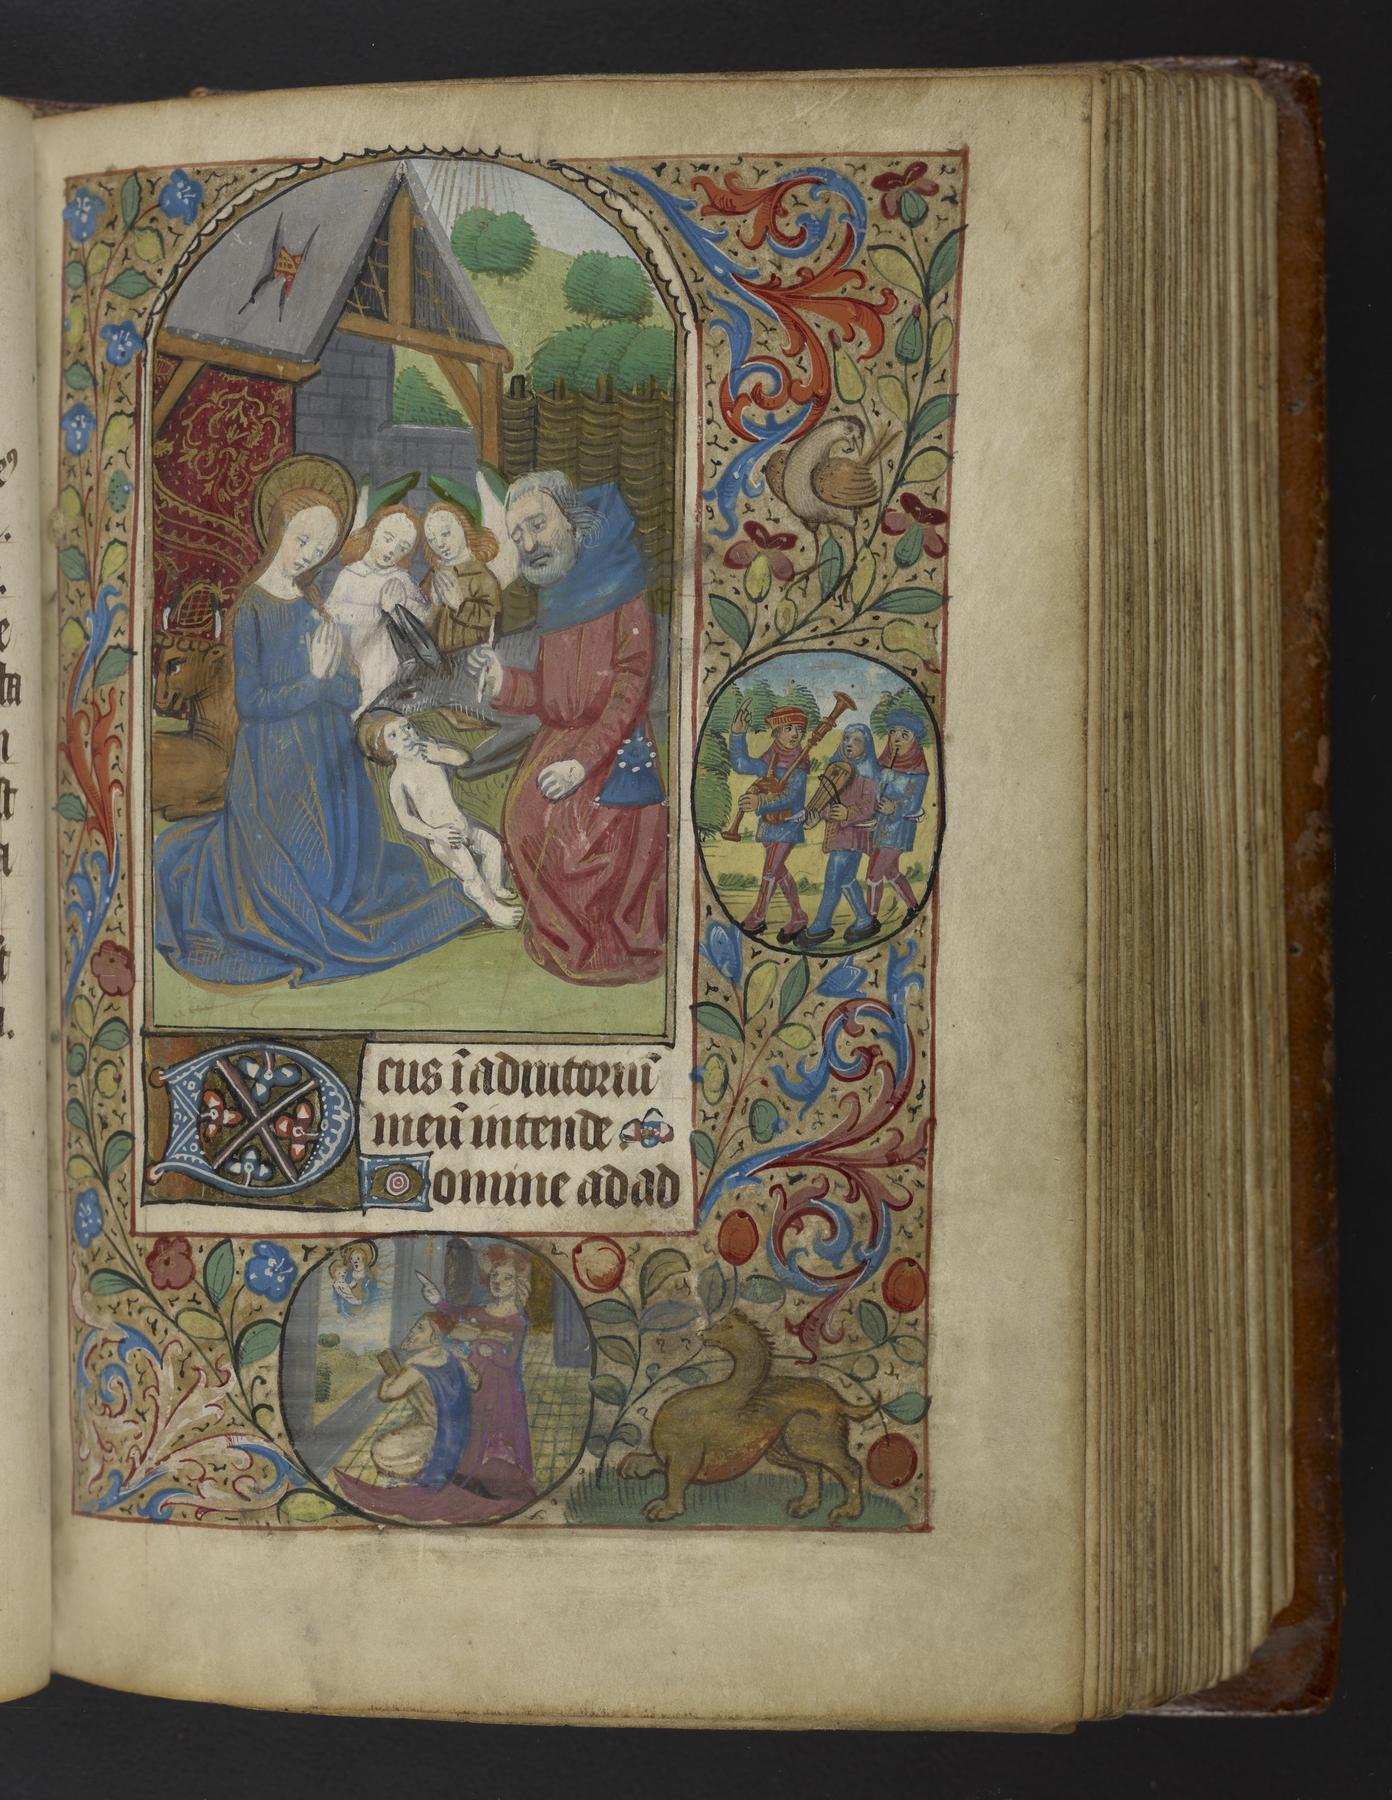 Deus ī adiutoriū
meū intende
Domine ad ad